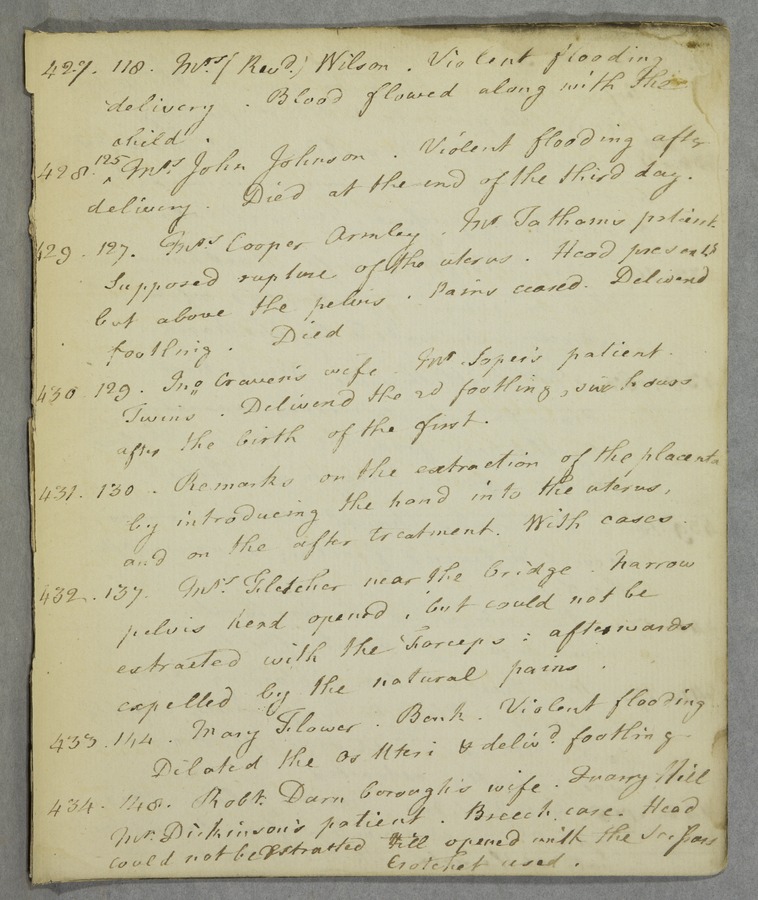 427. 118. Mrs. (Revd.) Wilson. Violent flooding
delivery. Blood flowed along with the
child.
428. 125 Mrs. John Johnson. Violent flooding after
delivery. Died at the end of the third day.
429. 127. Mrs Cooper Armley. Mr. Tatham's patient.
Supposed rupture of the uterus. Head presents
but above the pelvis. Pains ceased. Deliverd
footling. Died
430. 129. Jno. Craven's wife. Mr. Soper's patient.
Twins. Deliverd the 2d footling, six hours
after the birth of the first.
431. 130. Remarks on the extraction of the placenta
by introducing the hand into the uterus,
and on the after treatment. With cases.
432. 137. Mrs. Fletcher near the bridge. Narrow
pelvis head opened, but could not be
extracted with the Forceps: afterwards
expelled by the natural pains.
433. 144. Mary Flower. Bank. Violent flooding
Dilated the Os Uteri & delivd. footling
434. 148. Robt. Darnborough's wife. Quarry Hill
Mr. Dickinson's patient. Breech case. Head
could not be Extracted till opened with the Scissors
Crotchet used.